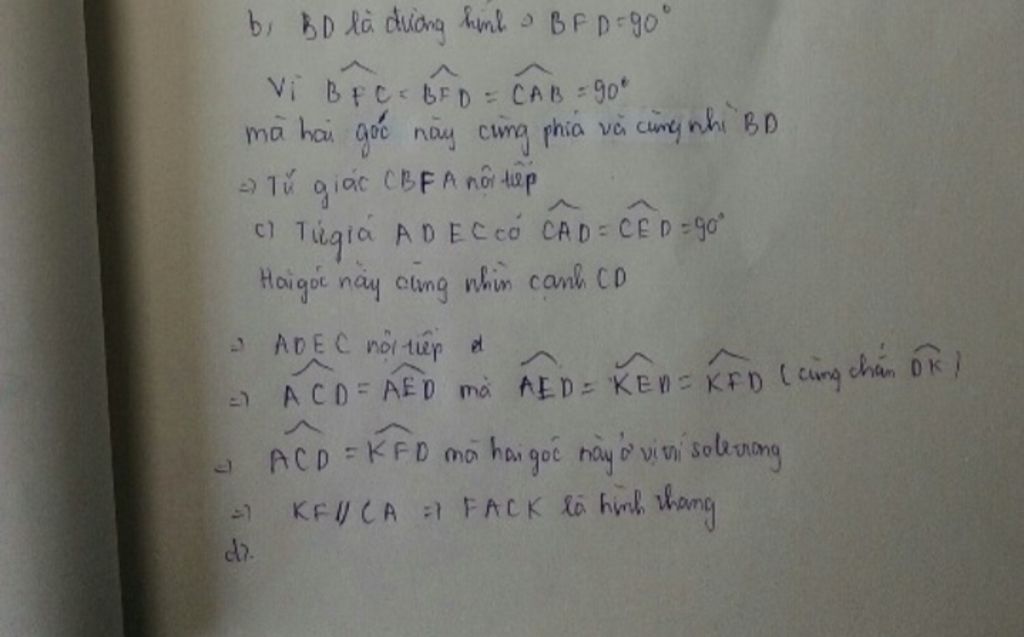 b, BD là đường kính => BFD = 90°
Vì BFC = BFD = CAB = 90°
mà hai góc này cùng phía và cùng nhì BD
=> Tứ giác CBFA nội tiếp
c) Tứ giá ADEC có CAD = CED = 90°
Hai góc này cùng nhìn cạnh CD
=> ADEC nội tiếp
=> ACD = AED mà AED = KED = KFD (cùng chắn DK)
=> ACD = KFD mà hai góc này ở vị trí so le trong
=> KF // CA => FACK là hình thang
d).